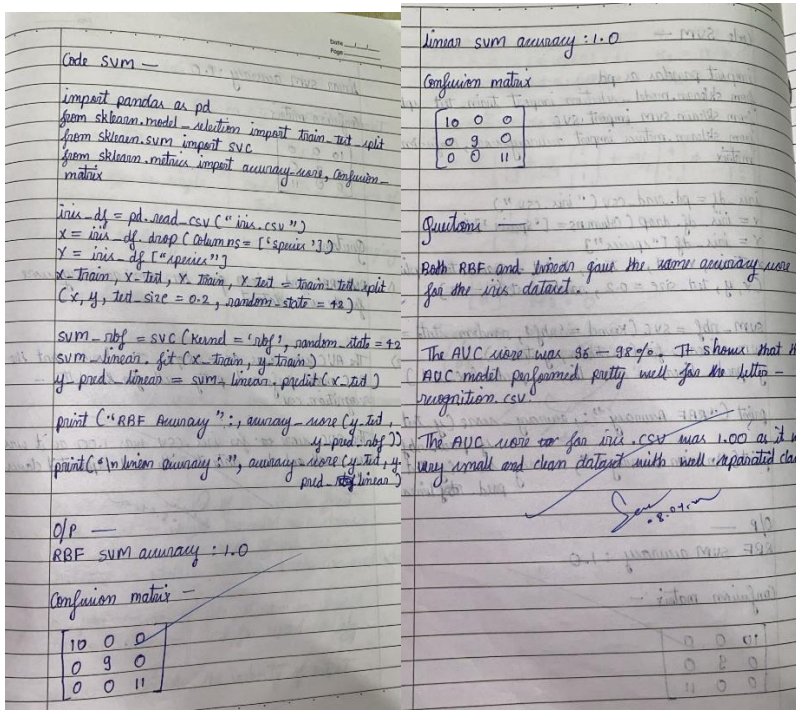 Date
Page
Code SVM —
import pandas as pd
from sklearn.model_selection import train_test_split
from sklearn.svm import SVC
from sklearn.metrics import accuracy_score, confusion_
matrix
iris_df = pd.read_csv("iris.csv")
x = iris_df.drop(columns=['species'])
Y = iris_df["species"]
x_train, x_test, Y_train, Y_test = train_test_split
(x, y, test_size = 0.2, random_state = 42)
svm_rbf = SVC(Kernel = 'rbf', random_state = 42
svm_linear.fit(x_train, y_train)
y_pred_linear = svm_linear.predict(x_test)
print("RBF Accuracy":, accuracy_score(y_test,
y_pred_rbf))
print("\n linear accuracy:", accuracy_score(y_test, y_
pred_linear)
O/P —
RBF SVM accuracy : 1.0
Confusion matrix —
10 0 0
0 9 0
0 0 11
Linear SVM accuracy : 1.0
Confusion matrix
10 0 0
0 9 0
0 0 11
Questions —
Both RBF and linear gave the same accuracy score
for the iris dataset.
The AUC score was 96 – 98%. It shows that
AUC model performed pretty well for the letter –
recognition.csv.
The AUC score for iris.csv was 1.00 as it
very small and clean dataset with well separated